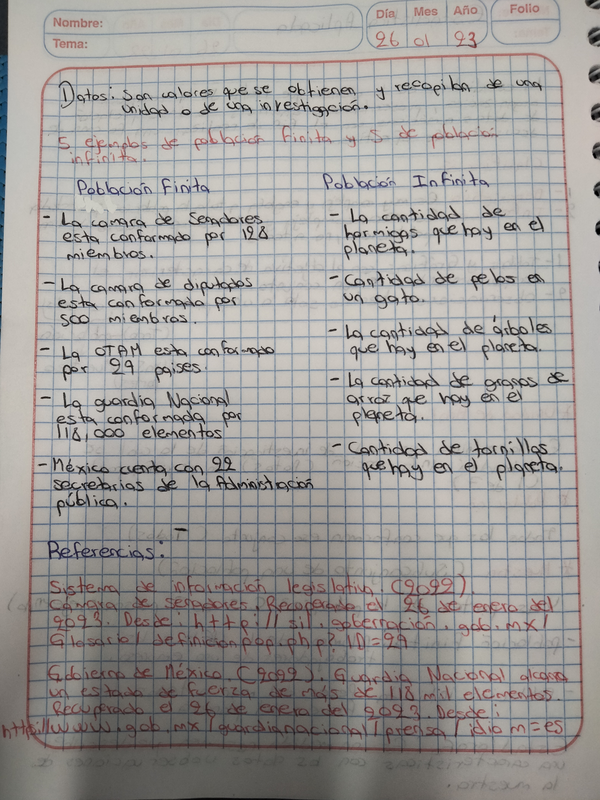 Nombre:
Tema:
Día Mes Año
26 01 23
Folio
Datos: Son valores que se obtienen y recopilan de una
unidad o de una investigación.
5 ejemplos de población finita y 5 de población
infinita.
Población Finita
- La cámara de Senadores
esta conformado por 128
miembros.
- La cámara de diputados
esta conformada por
500 miembros.
- La OTAM esta conformado
por 29 países.
- La guardia Nacional
esta conformada por
118,000 elementos
- México cuenta con 22
secretarias de la Administración
pública.
Población Infinita
- La cantidad de
hormigas que hay en el
planeta.
- Cantidad de pelos en
un gato.
- La cantidad de árboles
que hay en el planeta.
- La cantidad de granos de
arroz que hay en el
planeta.
- Cantidad de tornillos
que hay en el planeta.
Referencias:
Sistema de información legislativa. (2022)
Cámara de senadores. Recuperado el 26 de enero del
2023. Desde: http://sil.gobernación.gob.mx/
Glosario/definicionpop.php?ID=29
Gobierno de México. (2022). Guardia Nacional alcanza
un estado de fuerza de más de 118 mil elementos.
Recuperado el 26 de enero del 2023. Desde:
https://www.gob.mx/guardianacional/prensa/idiom=es